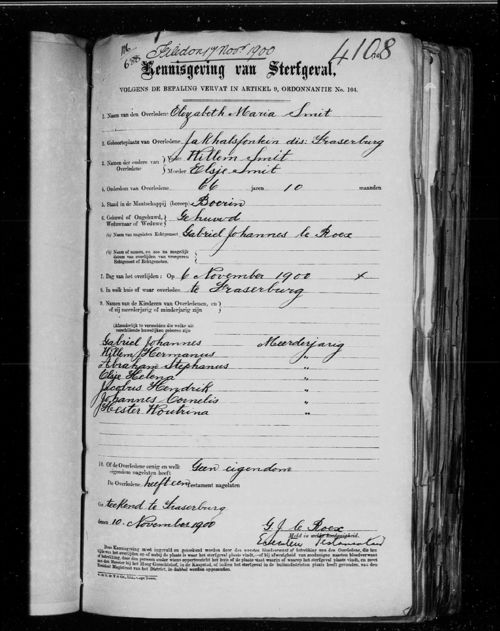 Filed on 17 Nov. 1900
4108
Kennisgeving van Sterfgeval,
VOLGENS DE BEPALING VERVAT IN ARTIKEL 9, ORDONNANTIE No. 104.
1. Naam van den Overledene Elizabeth Maria Smit
2. Geboorteplaats van Overledene Jakhalsfontein dis: Fraserburg
3. Namen der ouders van Overledene Vader Willem Smit
Moeder Elsje Smit
4. Ouderdom van Overledene 66 jaren 10 maanden
5. Stand in de Maatschappij (beroep) Boerin
6. Gehuwd of Ongehuwd, Weduwnaar of Weduwe Gehuwd
(a) Naam van nagelaten Echtgenoot Gabriel Johannes le Roex
(b) Naam of namen, en zoo na mogelijk datum van overlijden van vroegeren Echtgenoot of Echtgenooten.
7. Dag van het overlijden: Op 6 November 1900
8. In welk huis of waar overleden te Fraserburg
9. Namen van de Kinderen van Overledenen, en of zij meerderjarig of minderjarig zijn
(Afzonderlijk te vermelden die welke uit verschillende huwelijken geboren zijn
Gabriel Johannes Meerderjarig
Willem Hermanus "
Abraham Stephanus "
Elsje Helena "
Jacobus Hendrik "
Johannes Cornelis "
Hester Woutrina "
10. Of de Overledene eenig en welk eigendom nagelaten heeft Geen eigendom
De Overledene heeft een Testament nagelaten
Geteekend te Fraserburg
den 10 November 1900
G. J. le Roex
Executeur Testamentair